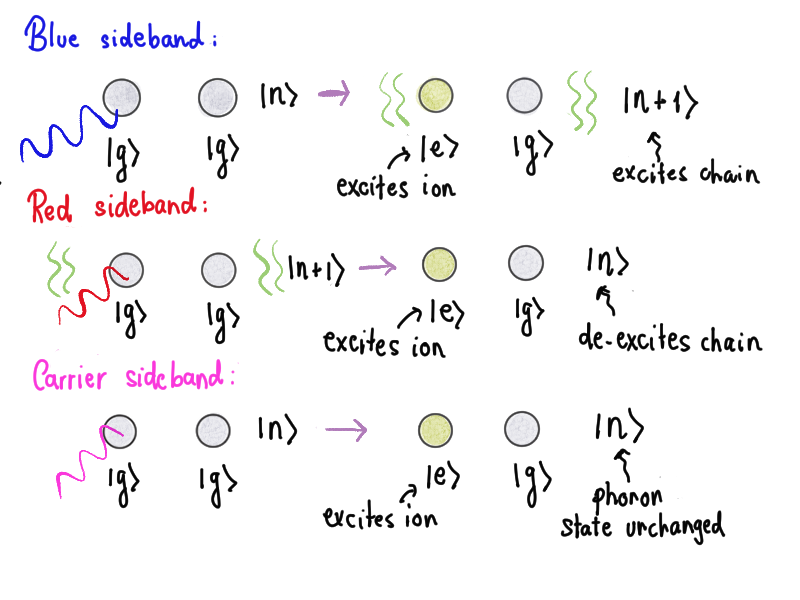 Blue sideband:
|n⟩ → |n+1⟩
|g⟩ |g⟩ |e⟩ |g⟩
excites ion excites chain
Red sideband:
|n+1⟩ → |n⟩
|g⟩ |g⟩ |e⟩ |g⟩
excites ion de-excites chain
Carrier sideband:
|n⟩ → |n⟩
|g⟩ |g⟩ |e⟩ |g⟩
excites ion phonon
state unchanged